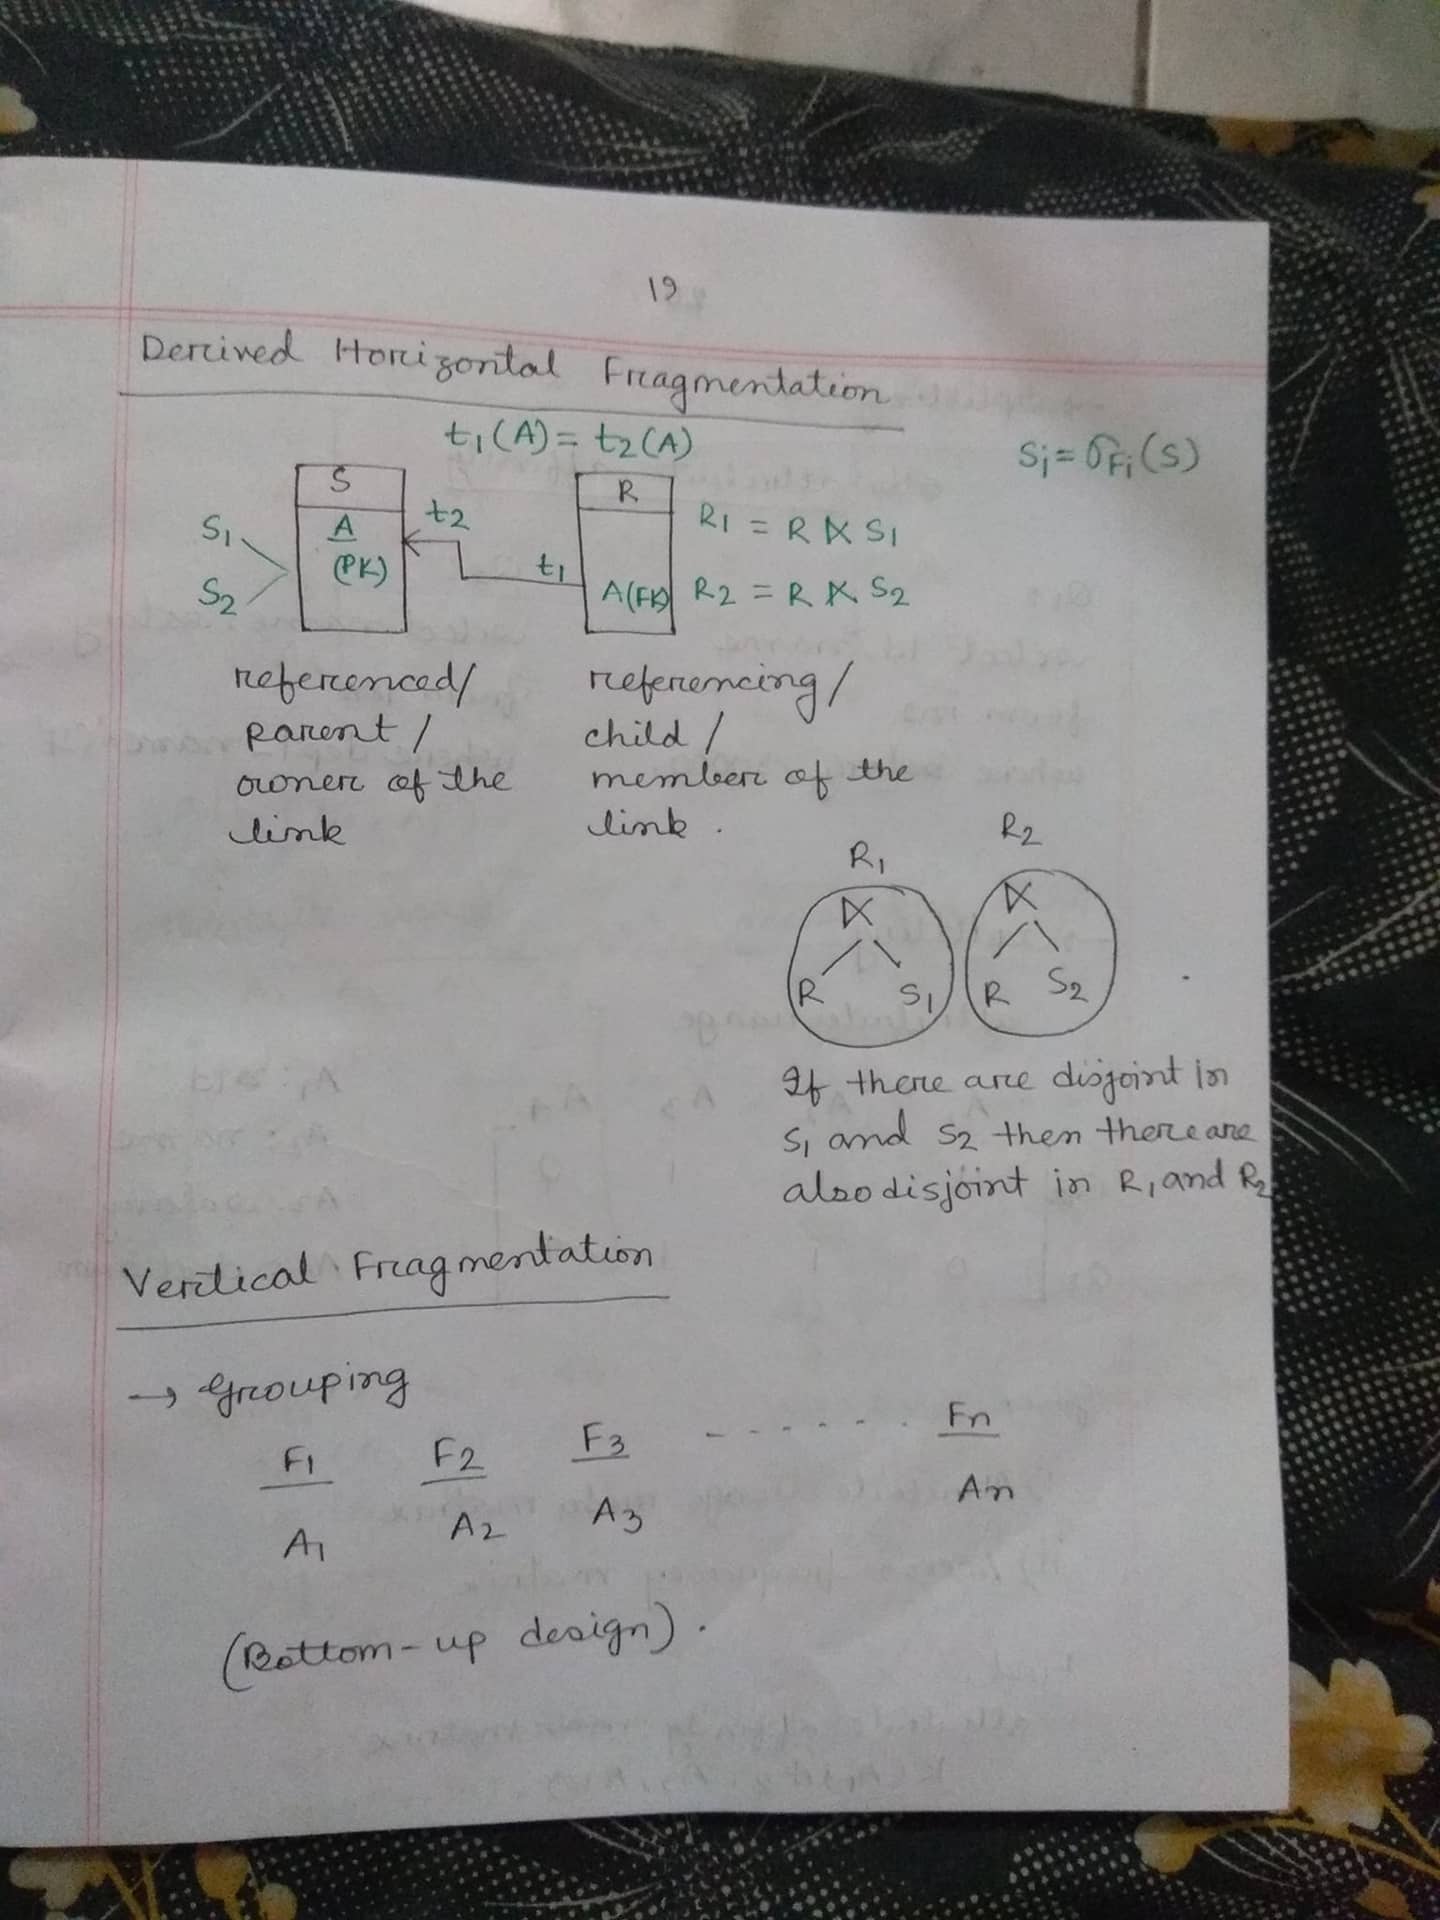 19
Derived Horizontal Fragmentation
t1(A) = t2(A)
Si = σFi(S)
S
R
S1
A
t2
R1 = R ⋉ S1
(PK)
t1
S2
A(FK)
R2 = R ⋉ S2
referenced/
parent/
owner of the
link
referencing/
child/
member of the
link.
R1
R2
⋉
⋉
R S1
R S2
If there are disjoint in
S1 and S2 then there are
also disjoint in R1 and R2
Vertical Fragmentation
→ Grouping
F1 F2 F3 ------. Fn
A1 A2 A3 An
(Bottom-up design).